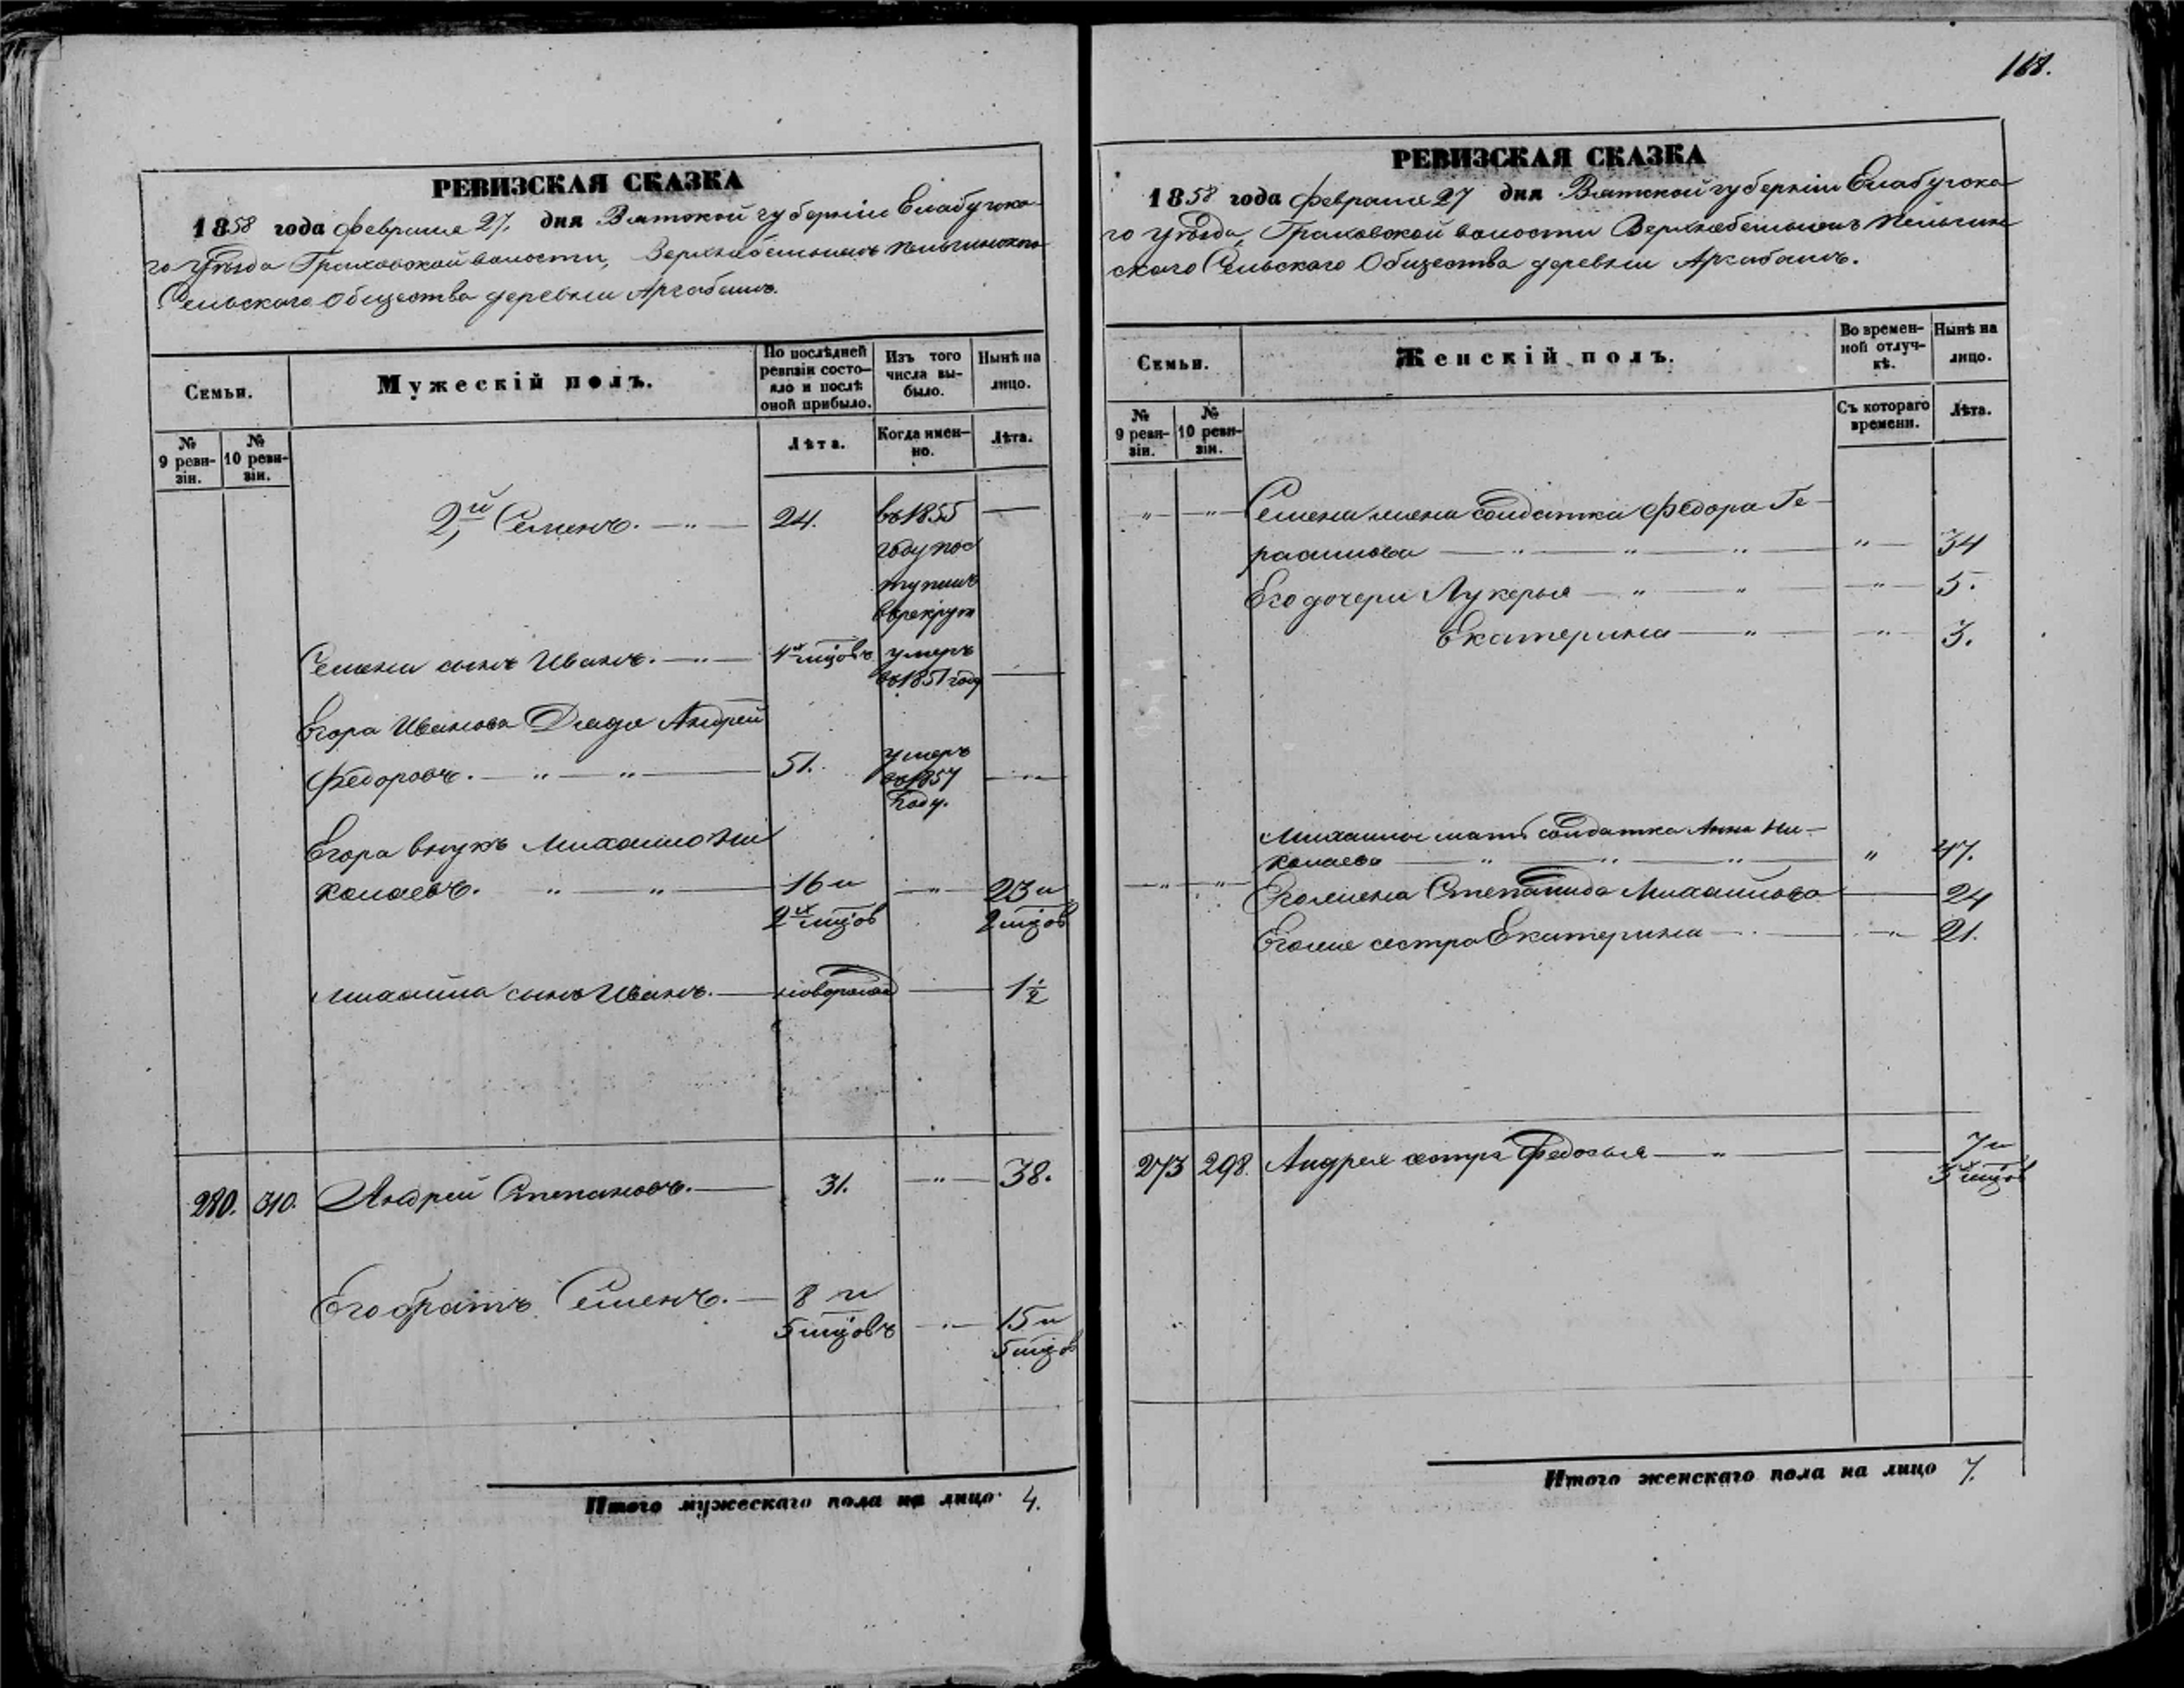 168.
РЕВИЗСКАЯ СКАЗКА
1858 года февраля 27. дня Вятской губерніи Елабугска-
го Уѣзда Граховской волости, Верхнебемыжъ Пельгинскаго
Сельскаго Общества деревни Аркабашъ.
Семьи.
Мужескій полъ.
По послѣдней
ревизіи состо-
яло и послѣ
оной прибыло.
Изъ того
числа вы-
было.
Нынѣ на
лицо.
№
9 реви-
зіи.
№
10 реви-
зіи.
Лѣта.
Когда имен-
но.
Лѣта.
2й Семенъ. — 24. въ 1855 —
году пос
тупилъ
в рекрут
Семена сынъ Иванъ. — 4х мцовъ умеръ
въ 1851 году —
Егора Иванова Дядя Андрей
Федоровъ. — " — " — 51. умеръ
въ 1857 —
году.
Егора внукъ Михаило Ни
колаевъ. " — " — 16 и — " — 23 и
2х мцов 2 мцов
Михайла сынъ Иванъ. — новорожд — 1½
280. 310. Андрей Степановъ. — 31. — " — 38.
Его братъ Семенъ. — 8 и
5 мцовъ — " — 15 и
5 мцов
Итого мужескаго пола на лицо 4.
РЕВИЗСКАЯ СКАЗКА
1858 года февраля 27 дня Вятской губерніи Елабугска-
го Уѣзда, Граховской волости Верхнебемыжъ Пельгин
скаго Сельскаго Общества деревни Аркабашъ.
Семьи.
Женскій полъ.
Во времен-
ной отлуч-
кѣ.
Нынѣ на
лицо.
№
9 реви-
зіи.
№
10 реви-
зіи.
Съ котораго
времени.
Лѣта.
" — " — Семена жена солдатка Федора Ге-
расимова — " — " — " — " — 34
Его дочери Лукерья — " — " — " — 5.
Екатерина — " — " — 3.
Михаилы мать солдатка Анна Ни-
колаева — " — " — " — " 47.
— " — " — Его жена Степанида Михайлова — 24
Его же сестра Екатерина — " — 21.
273 298. Андрея сестра Федосья — " — 7 и
3х мцов
Итого женскаго пола на лицо 7.